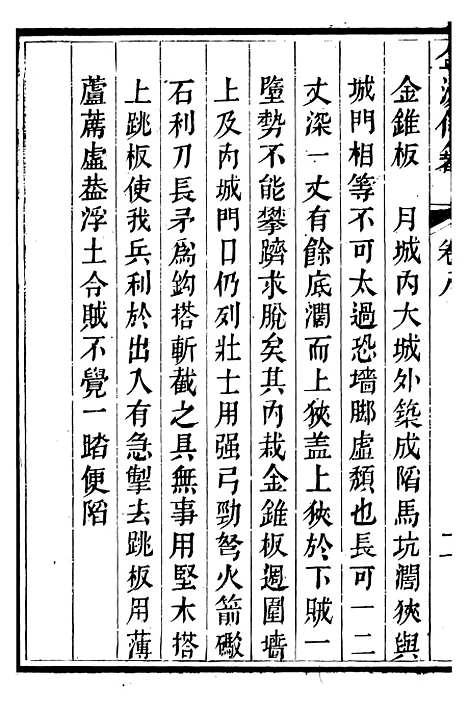 金錐板　月城內大城外築成陷馬坑濶狹與
城門相等不可太過恐墻脚虛頹也長可一二
丈深一丈有餘底濶而上狹盖上狹於下賊一
墮勢不能攀躋求脫矣其內栽金錐板週圍墻
上及內城門口仍列壯士用强弓勁弩火箭礮
石利刀長矛爲鈎搭斬截之具無事用堅木搭
上跳板使我兵利於出入有急掣去跳板用薄
蘆蓆虛葢浮土令賊不覺一踏便陷
卷八
二